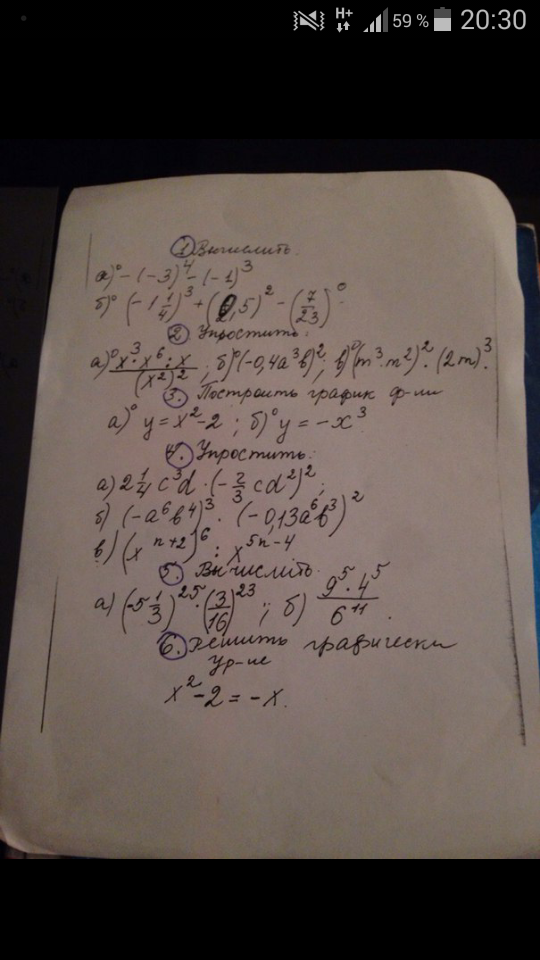 H+ 59 % 20:30
1 Вычислить.
а) -(-3)^4 - (-1)^3
б) (-1 1/4)^3 + (2,5)^2 - (7/23)^0
2 Упростить:
а) x^3 · x^6 : x / (x^2)^2 ; б) (-0,4a^3b)^2 ; в) (m^3 · n^2)^2 · (2m)^3.
3. Построить график ф-ии
а) y = x^2 - 2 ; б) y = -x^3
4. Упростить:
а) 2 1/4 c^3d · (-2/3 cd^2)^2 ;
б) (-a^6b^4)^3 · (-0,13a^6b^3)^2
в) (x^{n+2})^6 : x^{5n-4}
5. Вычислить
а) (-5 1/3)^25 · (3/16)^23 ; б) 9^5 · 4^5 / 6^11.
6. Решить графически
Ур-ие
x^2 - 2 = -x.